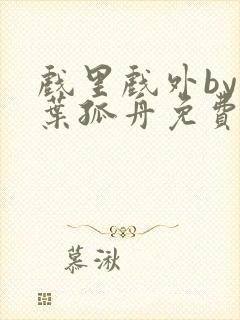 戲里戲外by
葉孤舟免費
慕湫